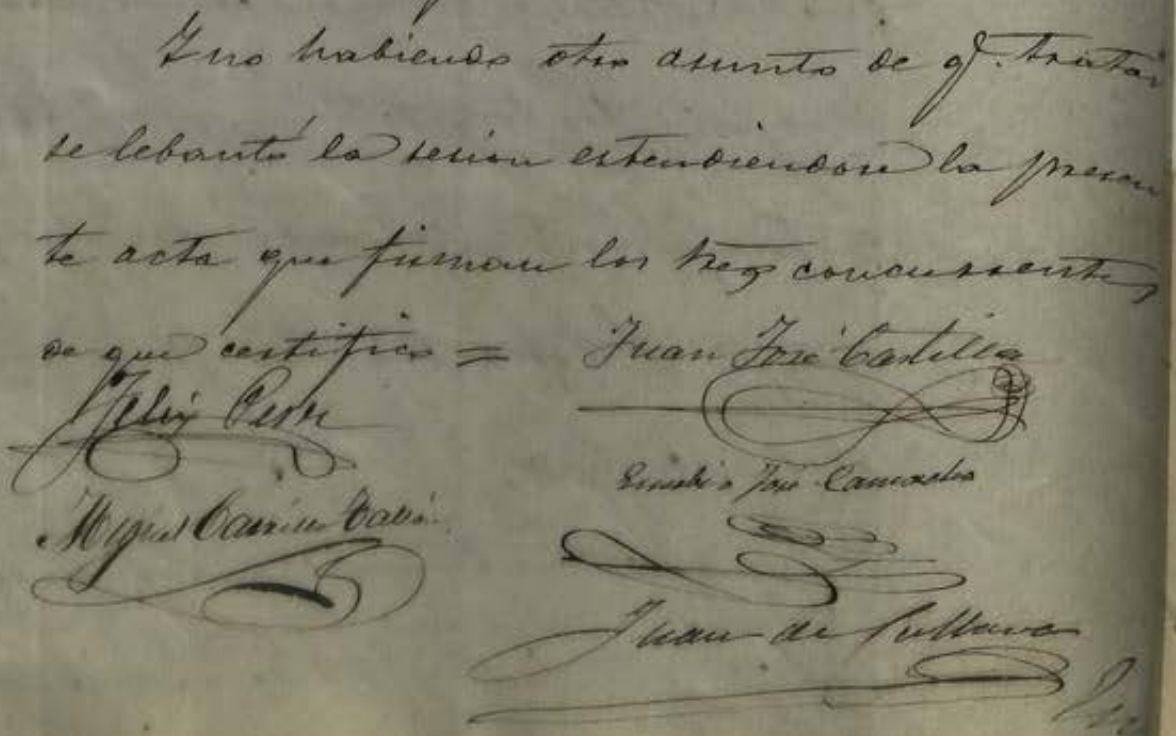 Y no habiendo otro asunto de q.e tratar
se lebantó la sesion estendiendose la presen
te acta que firman los Sres concurrentes
de que certifico =
Juan José Castilla
Felix
Eusebio José Camacho
Miguel Carrillo
Juan de